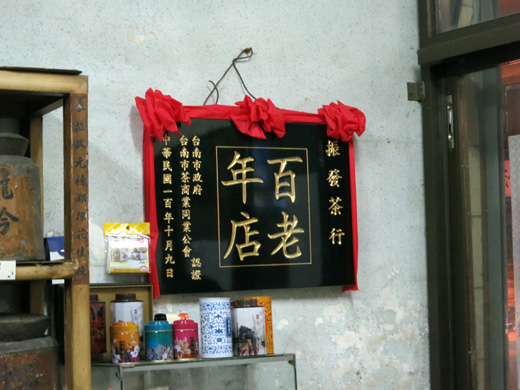 振發茶行
百老
年店
台南市政府
台南市茶商業同業公會 認證
中華民國一百年十月九日